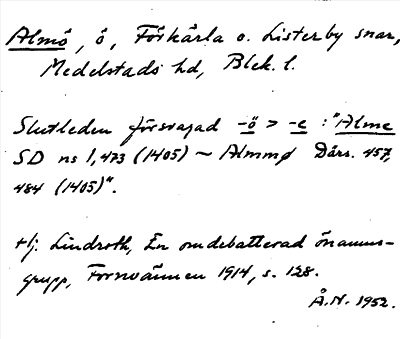 Almö, ö, Förkärla o. Listerby snar,
Medelstads hd, Blek. l.
Slutleden försvagad -ö > -e : "Alme
SD ns 1,473 (1405) ~ Almmø Dårs. 457,
484 (1405)".
Hj. Lindroth, En omdebatterad önamns-
grupp, Fornvännen 1914, s. 128.
Å.N. 1952.